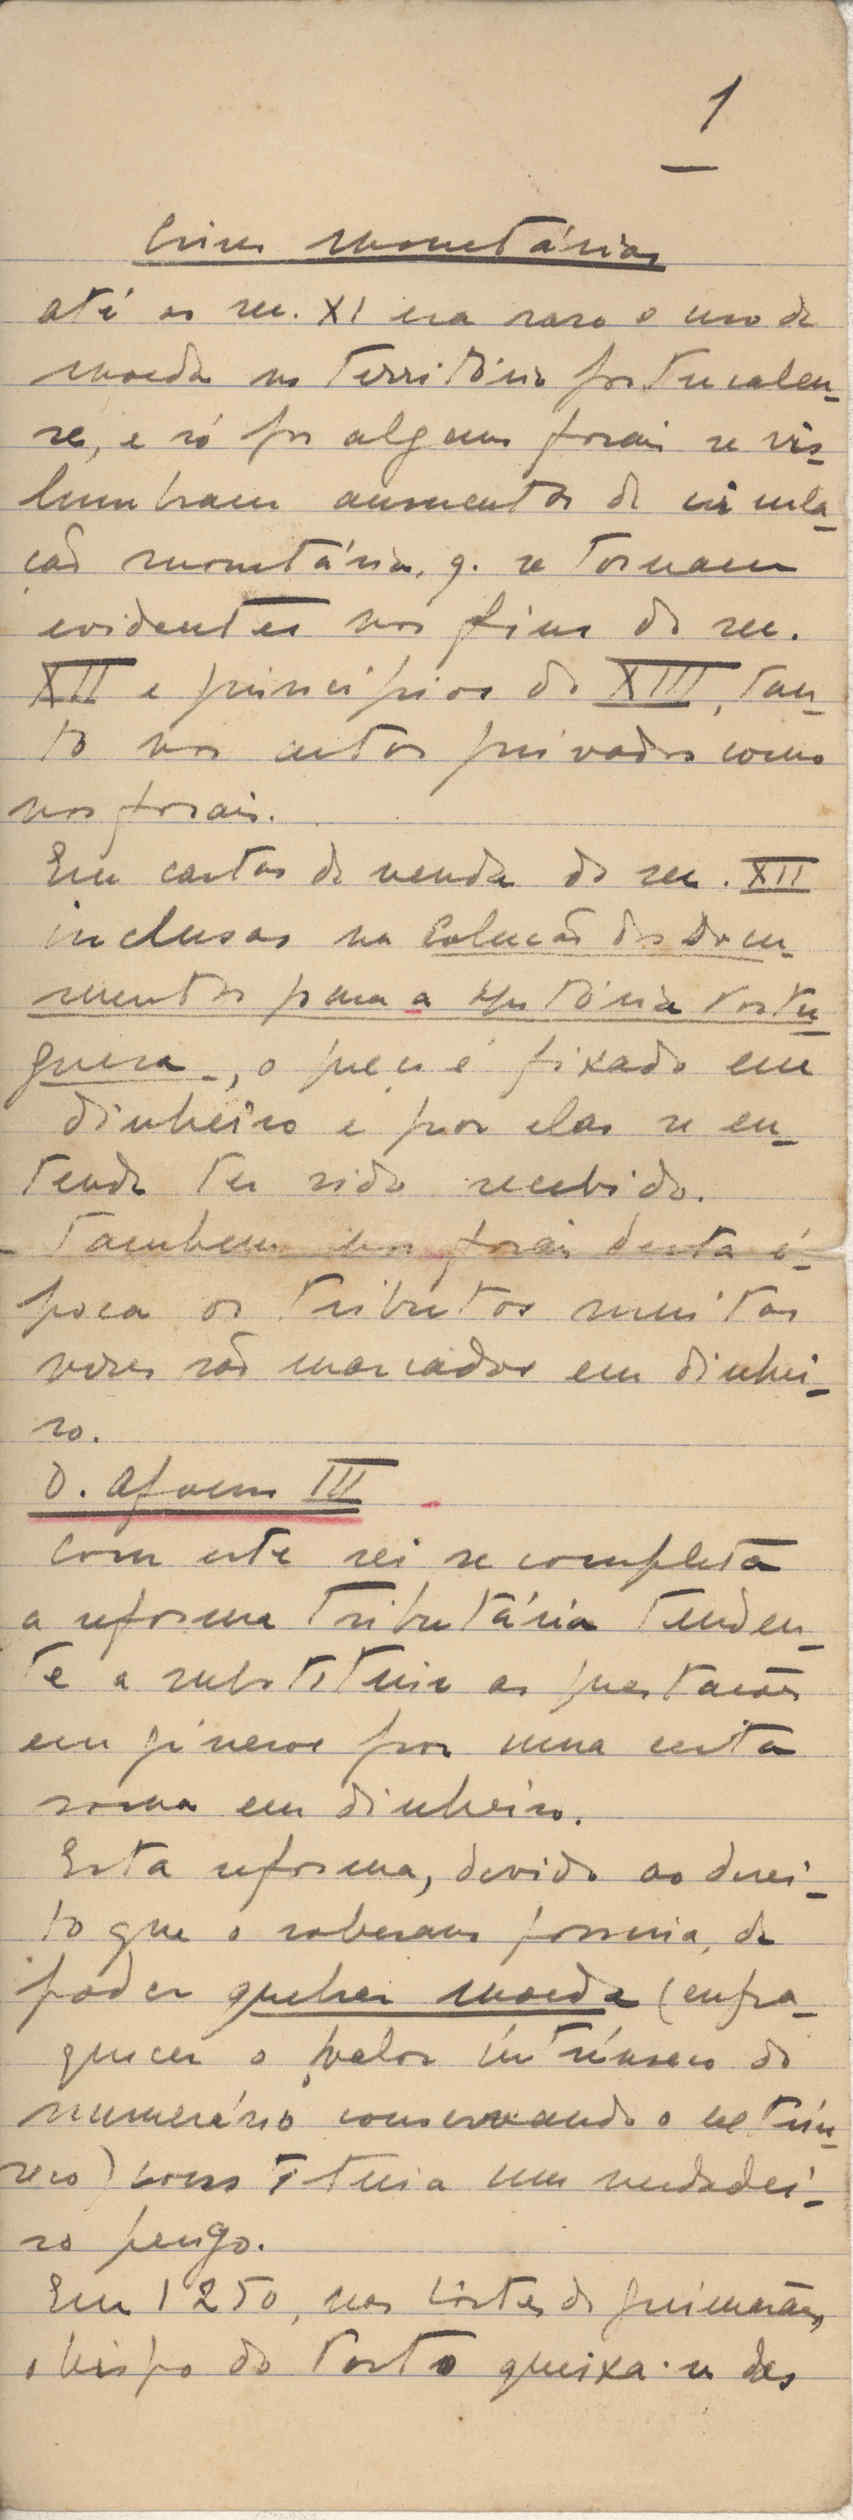 1
Crises monetárias
até ao sec. XI era raro o uso da
moeda no território portucalen-
se, e só por alguns forais se vis-
lumbram aumentos de circula-
ção monetária, q. se tornam
evidentes nos fins do sec.
XII e principios do XIII, tan-
to nos actos privados como
nos forais.
Em cartas de venda do sec. XII
inclusas na Colecção dos Docu-
mentos para a História Portu-
guesa -, o preço é fixado em
dinheiro e por elas se en-
tende ter sido recebido.
- Tambem nos forais desta é-
poca os tributos muitas
vezes são marcados em dinhei-
ro.
D. Afonso III
Com este rei se completa
a reforma tributária tenden-
te a substituir as prestações
em géneros por uma certa
soma em dinheiro.
Esta reforma, devido ao direi-
to que o soberano possuia, de
poder quebrar moeda (enfra-
quecer o valor intrínseco do
numerário conservando o extrín-
seco) constituia um verdadei-
ro perigo.
Em 1250, nas Côrtes de Guimarães,
o bispo do Porto queixa-se das